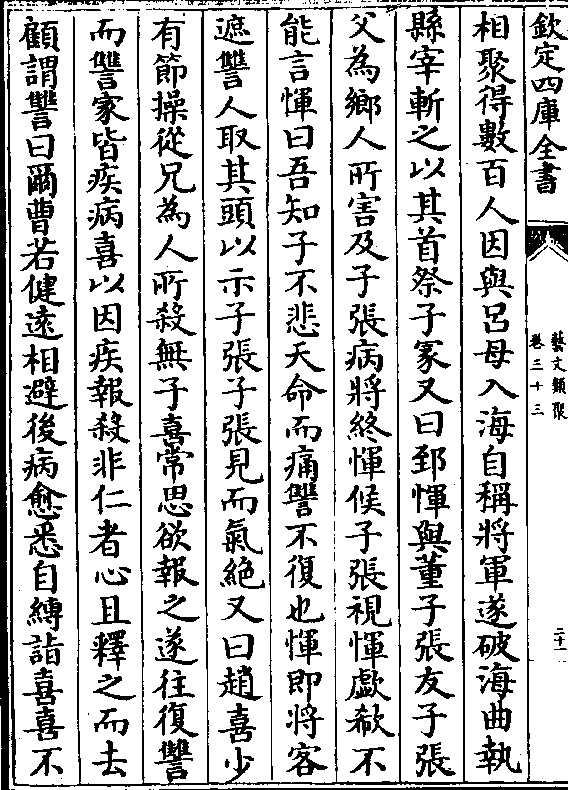 欽定四庫全書
藝文類聚
卷三十三
二十一
相聚得數百人因與呂母入海自稱將軍遂破海曲執
縣宰斬之以其首祭子冢又曰郅惲與董子張友子張
父為鄉人所害及子張病將終惲候子張視惲歔欷不
能言惲曰吾知子不悲天命而痛讐不復也惲即將客
遮讐人取其頭以示子張子張見而氣絶又曰趙喜少
有節操從兄為人所殺無子喜常思欲報之遂往復讐
而讐家皆疾病喜以因疾報殺非仁者心且釋之而去
顧謂讐曰爾曹若健遠相避後病愈悉自縛詣喜喜不